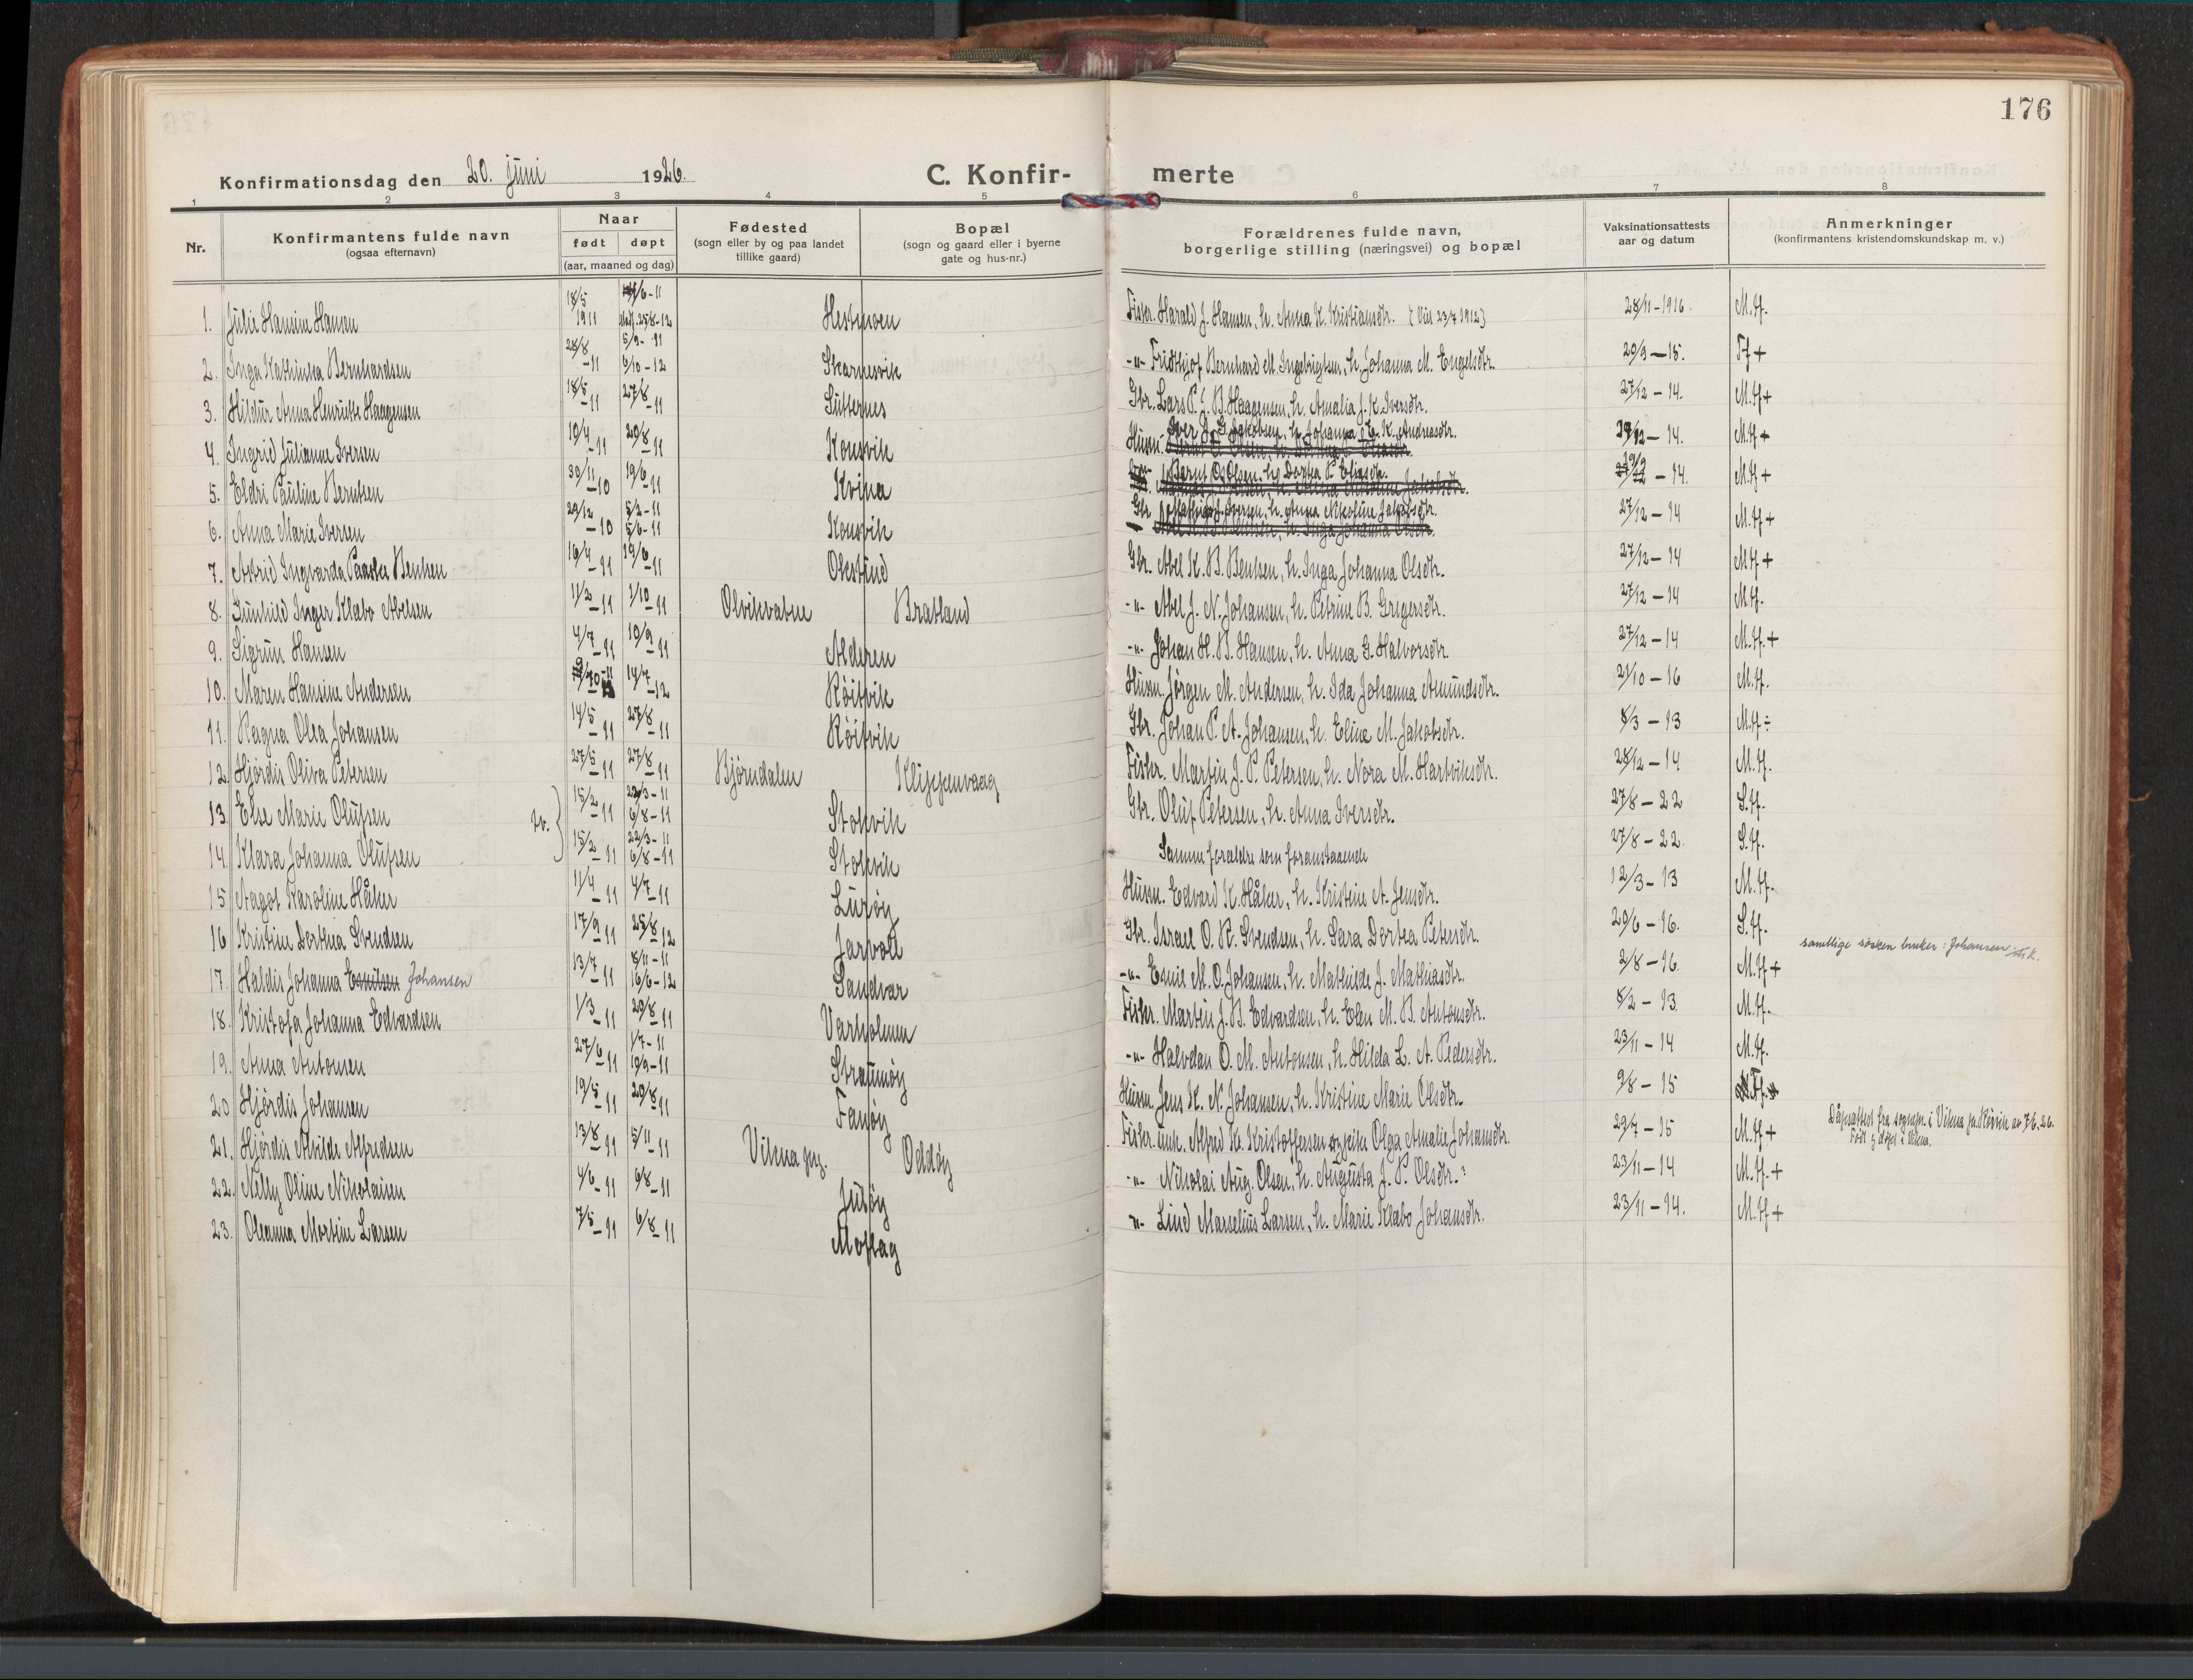 176
Konfirmationsdag den 20. juni 1926.
C. Konfir- merte
1 2 3 4 5 6 7 8
Nr.
Konfirmantens fulde navn
(ogsaa efternavn)
Naar
født døpt
(aar, maaned og dag)
Fødested
(sogn eller by og paa landet
tillike gaard)
Bopæl
(sogn og gaard eller i byerne
gate og hus-nr.)
Forældrenes fulde navn,
borgerlige stilling (næringsvei) og bopæl
Vaksinationsattests
aar og datum
Anmerkninger
(konfirmantens kristendomskundskap m. v.)
1. Julie Hansine Hansen 18/5 1911 /6-11 stadf. 25/8-12 Hestmoen Fisker Harald J. Hansen, h. Anna K. Kristiansdtr. (Viet 23/7 1912) 28/11-1916. M.H.
2. Inga Kathinka Bernhardsen 28/8-11 5/9-11 6/10-12 Skarnesvik -"- Fridthjof Bernhard M. Ingebrigtsen, h. Johanna M. Engelsdtr. 20/9-15. Tf+
3. Hildur Anna Henrikke Haagensen 18/5-11 27/8-11 Sutternes Gbr. Lars P. J. B. Haagensen, h. Amalia J. K. Iversdtr. 27/12-14. M.H+
4. Ingrid Julianne Iversen 10/4-11 20/8-11 Konsvik Husm. Iver J. G. Jakobsen, h. Johanna E. K. Andreasdtr. -14. M.H+
5. Eldri Pauline Berntsen 30/11-10 19/6-11 Kvina Bernt O. Olsen, h. Dortea P. Eliasdtr. -14. M.H+
6. Anna Marie Iversen 29/12-10 5/2-11 5/6-11 Konsvik Gbr. Mathias J. Iversen, h. Anna Nikoline Jakobsdtr. 27/12-14 M.H+
7. Astrid Ingvarda Paaske Bentsen 16/4-11 19/6-11 Okstind Gbr. Abel K. B. Bentsen, h. Inga Johanna Olsdtr. 27/12-14 M.H+
8. Gunhild Inger Klæbo Abelsen 11/2-11 1/10-11 Olvikvatne Bratland -"- Abel J. N. Johansen, h. Petrine B. Gregersdtr. 27/12-14 M.H.
9. Sigrun Hansen 4/7-11 10/9-11 Alderen -"- Johan H. B. Hansen, h. Anna G. Halvorsdtr. 27/12-14 M.H.+
10. Maren Hansine Andersen 14/7-12 Röitvik Husm. Jørgen M. Andersen, h. Ida Johanna Amundsdtr. 21/10-16 M.H.
11. Ragna Olea Johansen 14/5-11 27/8-11 Röitvik Gbr. Johan P. A. Johansen, h. Eline M. Jakobsdtr. 8/3-13 M.H÷
12. Hjördis Oliva Petersen 27/5-11 27/8-11 Björndalen Klippenvaag Fisker. Martin J. P. Petersen, h. Nora M. Hartviksdtr. 28/12-14 M.H.
13. Else Marie Olufsen tv. 15/2-11 22/3-11 6/8-11 Stokvik Gbr. Oluf Petersen, h. Anna Iversdtr. 27/8-22 S.H.
14. Klara Johanna Olufsen 15/2-11 22/3-11 6/8-11 Stokvik Samme forældre som foranstaaende 27/8-22. S.H.
15 Aagot Karoline Håker 11/4-11 4/7-11 Luröy Husm. Edvard K. Håker, h. Kristine A. Jensdtr. 12/3-13 M.H.
16 Kristine Dorthea Svendsen 17/9-11 25/8-12 Jarvoll Gbr. Israel O. R. Svendsen, h. Sara Dortea Petersdtr. 20/6-16. S.H.
17. Haldis Johanna Emilsen Johansen 13/7-11 8/11-11 16/6-12 Sandvær -"- Emil M. O. Johansen, h. Mathilde J. Mathiasdtr. 2/8-16. M.H+ samtlige søsken bruker: Johansen
18. Kristofa Johanna Edvardsen 1/3-11 20/8-11 Varholmen Fisker. Martin J. B. Edvardsen, h. Elen M. B. Antonsdtr. 8/2-13 M.H.
19. Anna Antonsen 27/6-11 1/7-11 19/9-11 Straumöy -"- Halvdan O. M. Antonsen, h. Hilda L. A. Pedersdtr. 23/11-14 M.H.
20 Hjördis Johansen 19/5-11 20/8-11 Fanöy Husm. Jens K. N. Johansen, h. Kristine Marie Olsdtr. 9/8-15
21. Hjördis Alvilde Alfredsen 13/8-11 5/11-11 Vikna pg. Oddöy Fisker Alfred K. Kristoffersen og Olga Amalie Johansdtr. 29/7-15 M.H+ Dåpsattest fra sognepr. i Vikna pr. Rörvik av 7/6.26. Født og døpt i Vikna.
22. Nelly Oline Nikolaisen 4/6-11 6/8-11 Jusöy -"- Nikolai Aug. Olsen, h. Augusta J. P. Olsdtr. 23/11-14 M.H.+
23. Oleanna Mortine Larsen 7/5-11 6/8-11 Moflag -"- Lind Marselius Larsen, h. Marie Klæbo Johansdtr. 23/11-14. M.H+